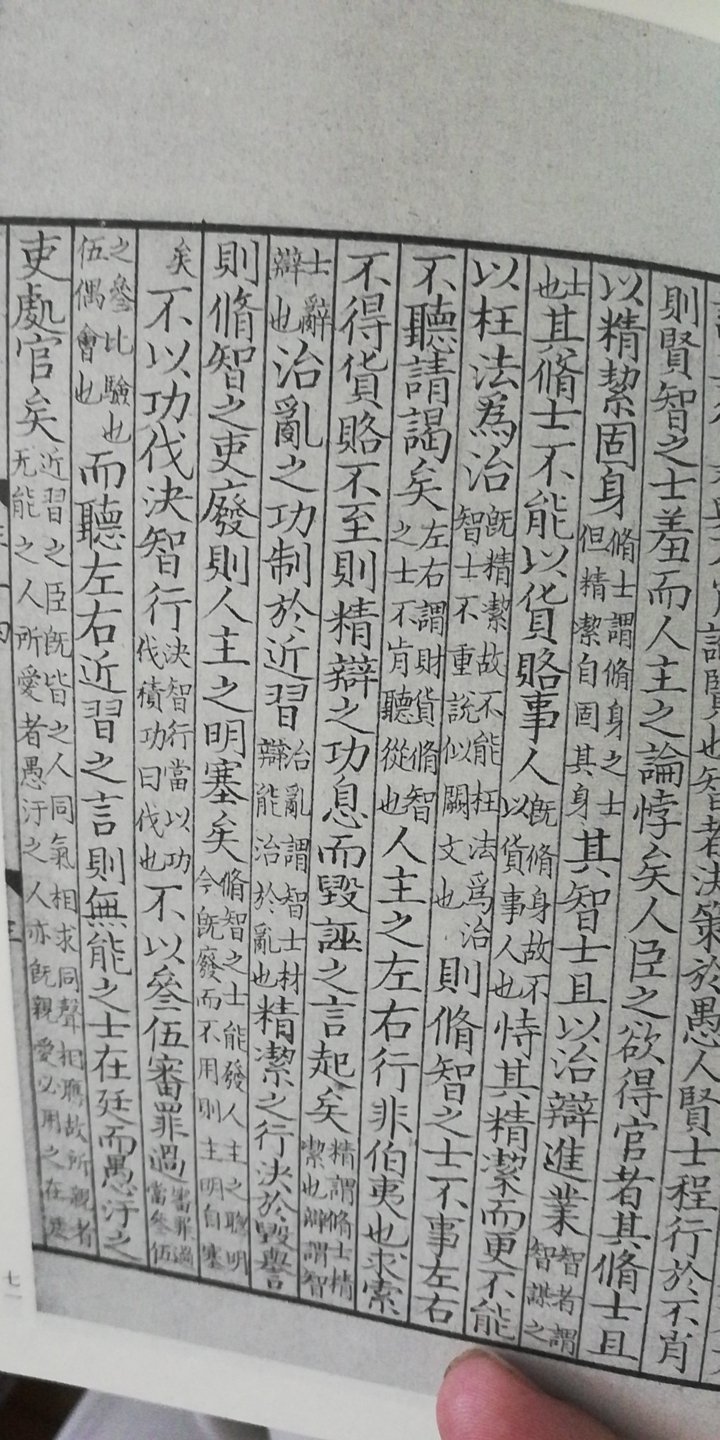 賢也智者決策於愚人賢士程行於不肖
則賢智之士羞而人主之論悖矣人臣之欲得官者其脩士且
以精絜固身脩士謂脩身之士但精潔自固其身其智士且以治辯進業智者謂智謀之
士也其脩士不能以貨賂事人既脩身故不以貨事人也恃其精潔而更不能
以枉法為治既精潔故不能枉法為治智士不重說似闕文也則脩智之士不事左右
不聽請謁矣左右謂財貨脩智之士不肯聽從也人主之左右行非伯夷也求索
不得貨賂不至則精辯之功息而毀誣之言起矣精謂脩士精潔也辯謂智
士辭辯也治亂之功制於近習治亂謂智士材辯能治於亂也精潔之行決於毀譽
則脩智之吏廢則人主之明塞矣脩智之士能發人主之聰明今既廢而不用則主明自塞
矣不以功伐決智行決智行當以功伐積功曰伐也不以參伍審罪過審罪過當參伍
之參比驗也伍偶會也而聽左右近習之言則無能之士在廷而愚汙之
吏處官矣近習之臣既皆之人同氣相求同聲相應故所親者无能之人所愛者愚汙之人亦既親愛必用之在
七